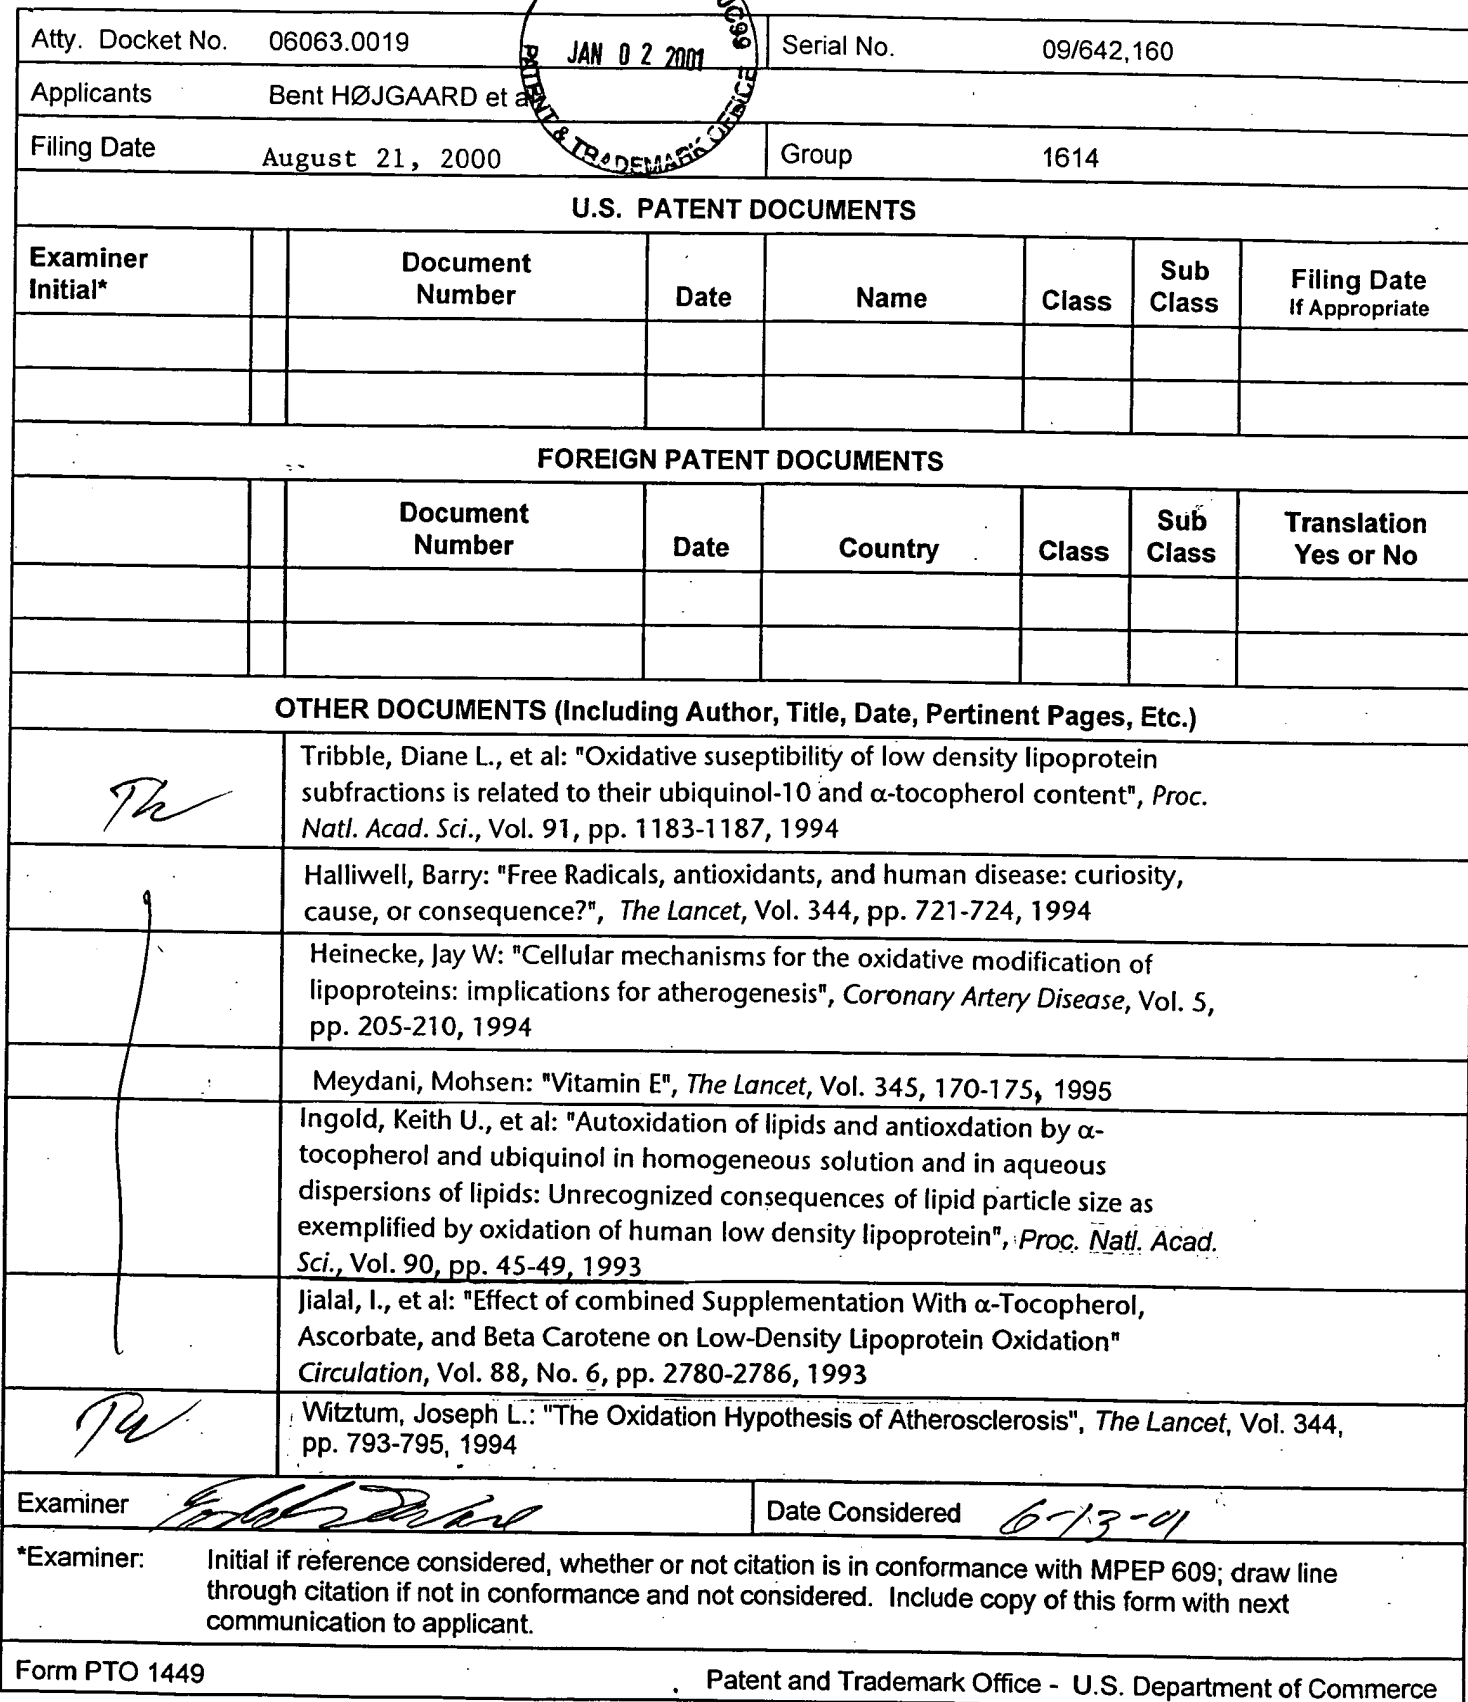 Atty. Docket No. 06063.0019 Serial No. 09/642,160
JAN 02 2001
PATENT & TRADEMARK OFFICE
Applicants Bent HØJGAARD et a
Filing Date August 21, 2000 Group 1614
U.S. PATENT DOCUMENTS
Examiner Initial* Document Number Date Name Class Sub Class Filing Date If Appropriate
FOREIGN PATENT DOCUMENTS
Document Number Date Country Class Sub Class Translation Yes or No
OTHER DOCUMENTS (Including Author, Title, Date, Pertinent Pages, Etc.)
Tribble, Diane L., et al: "Oxidative suseptibility of low density lipoprotein
subfractions is related to their ubiquinol-10 and α-tocopherol content", Proc.
Natl. Acad. Sci., Vol. 91, pp. 1183-1187, 1994
Halliwell, Barry: "Free Radicals, antioxidants, and human disease: curiosity,
cause, or consequence?", The Lancet, Vol. 344, pp. 721-724, 1994
Heinecke, Jay W: "Cellular mechanisms for the oxidative modification of
lipoproteins: implications for atherogenesis", Coronary Artery Disease, Vol. 5,
pp. 205-210, 1994
Meydani, Mohsen: "Vitamin E", The Lancet, Vol. 345, 170-175, 1995
Ingold, Keith U., et al: "Autoxidation of lipids and antioxdation by α-
tocopherol and ubiquinol in homogeneous solution and in aqueous
dispersions of lipids: Unrecognized consequences of lipid particle size as
exemplified by oxidation of human low density lipoprotein", Proc. Natl. Acad.
Sci., Vol. 90, pp. 45-49, 1993
Jialal, I., et al: "Effect of combined Supplementation With α-Tocopherol,
Ascorbate, and Beta Carotene on Low-Density Lipoprotein Oxidation"
Circulation, Vol. 88, No. 6, pp. 2780-2786, 1993
Witztum, Joseph L.: "The Oxidation Hypothesis of Atherosclerosis", The Lancet, Vol. 344,
pp. 793-795, 1994
Examiner Date Considered 6-13-01
*Examiner: Initial if reference considered, whether or not citation is in conformance with MPEP 609; draw line
through citation if not in conformance and not considered. Include copy of this form with next
communication to applicant.
Form PTO 1449 Patent and Trademark Office - U.S. Department of Commerce